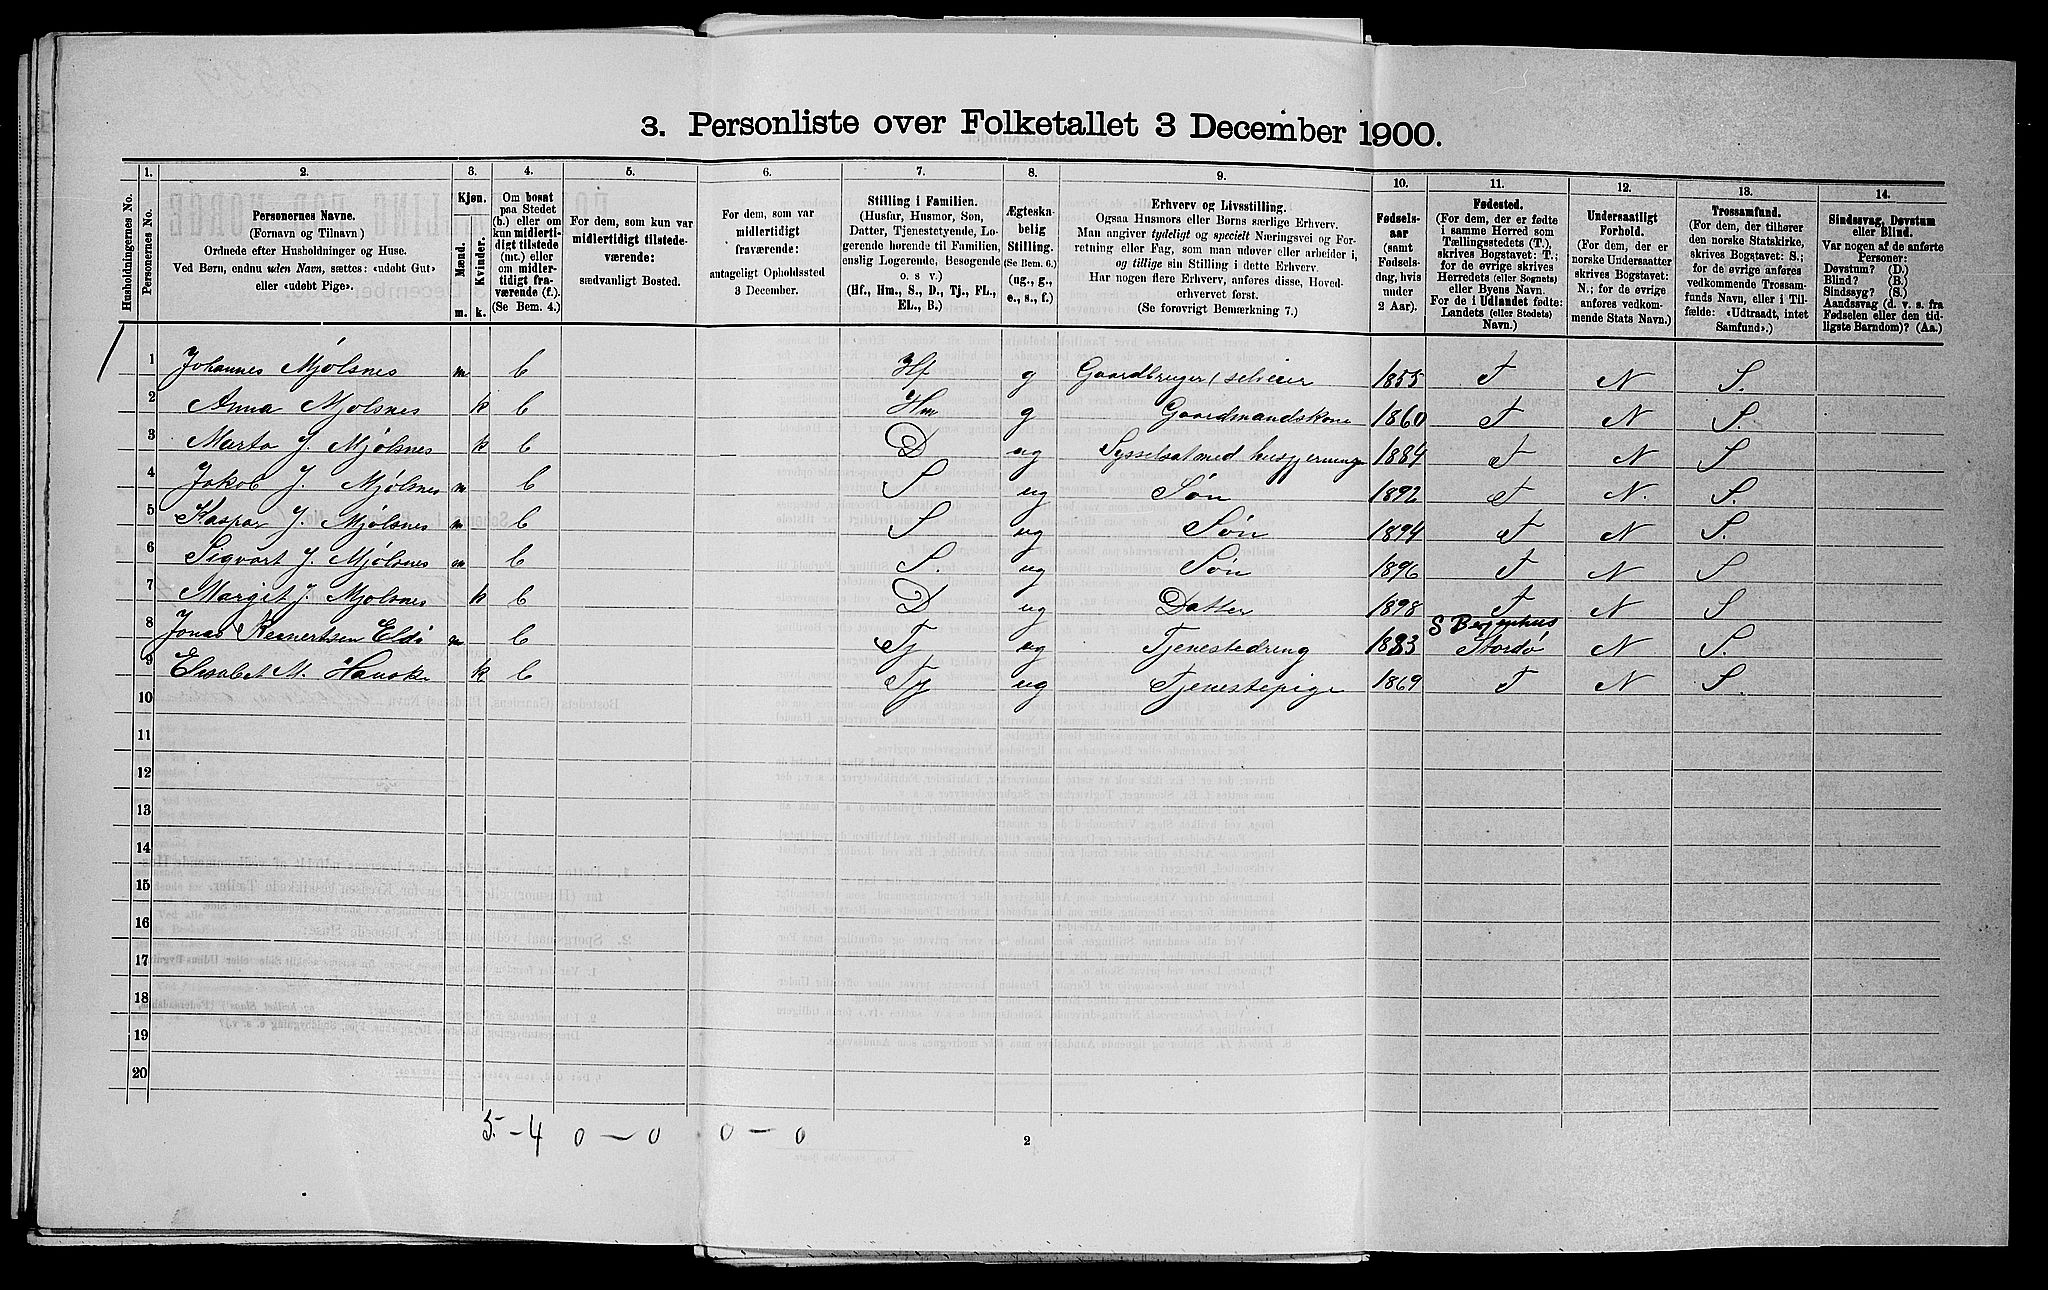 3. Personliste over Folketallet 3 December 1900.
Husholdningernes No.
1.
Personernes No.
2.
Personernes Navne.
(Fornavn og Tilnavn.)
Ordnede efter Husholdninger og Huse.
Ved Børn, endnu uden Navn, sættes: «udøbt Gut»
eller «udøbt Pige».
3.
Kjøn.
Mænd.
Kvinder.
m.
k.
4.
Om bosat
paa Stedet
(b.) eller om
kun midlerti-
digt tilstede
(mt.) eller
om midler-
tidigt fra-
værende (f.).
(Se Bem. 4.)
5.
For dem, som kun var
midlertidigt tilstede-
værende:
sædvanligt Bosted.
6.
For dem, som var
midlertidigt
fraværende:
antageligt Opholdssted
3 December.
7.
Stilling i Familien.
(Husfar, Husmor, Søn,
Datter, Tjenestetyende, Lo-
gerende hørende til Familien,
enslig Logerende, Besøgende
o. s v.)
(Hf., Hm., S., D., Tj., FL.,
EL., B.)
8.
Ægteska-
belig
Stilling.
(Se Bem. 6.)
(ug., g.,
e., s., f.)
9.
Erhverv og Livsstilling.
Ogsaa Husmors eller Børns særlige Erhverv.
Man angiver tydeligt og specielt Næringsvei og For-
retning eller Fag, som man udøver eller arbeider i,
og tillige sin Stilling i dette Erhverv.
Har nogen flere Erhverv, anføres disse, Hoved-
erhvervet først.
(Se forøvrigt Bemærkning 7.)
10.
Fødsels-
aar
(samt
Fødsels-
dag, hvis
under
2 Aar).
11.
Fødested.
(For dem, der er fødte
i samme Herred som
Tællingsstedets (T.),
skrives Bogstavet: T.;
for de øvrige skrives
Herredets (eller Sognets)
eller Byens Navn.
For de i Udlandet fødte:
Landets (eller Stedets)
Navn.)
12.
Undersaatligt
Forhold.
(For dem, der er
norske Undersaatter
skrives Bogstavet:
N.; for de øvrige
anføres vedkom-
mende Stats Navn.)
13.
Trossamfund.
(For dem, der tilhører
den norske Statskirke,
skrives Bogstavet: S.;
for de øvrige anføres
vedkommende Trossam-
funds Navn, eller i Til-
fælde: «Udtraadt, intet
Samfund».)
14.
Sindssvag, Døvstum
eller Blind.
Var nogen af de anførte
Personer:
Døvstum? (D.)
Blind? (B.)
Sindssyg? (S.)
Aandssvag (d. v. s. fra
Fødselen eller den tid-
ligste Barndom)? (Aa.)
1 1 Johannes Mjølsnes m b Hf g Gaardbruger, selveier 1855 T N S.
2 Anna Mjølsnes k b Hm g Gaardmandskone 1860 T N S.
3 Marta J. Mjølsnes k b D ug Sysselsat med husgjerning 1884 T N S
4 Jakob J. Mjølsnes m b S ug Søn 1892 T N. S.
5 Kaspar J. Mjølsnes m b S ug Søn 1894 T N S.
6 Sigvart J. Mjølsnes m b S. ug Søn 1896 T N S
7 Margit J. Mjølsnes k b D ug Datter 1898 T N S
S Bergenhus
8 Jonas Reinertsen Eldø m b Tj ug Tjenestedreng 1883 Stordø N S.
9 Elisabet M. Hauske k b Tj ug Tjenestepige 1869 T N S.
10
11
12
13
14
15
16
17
18
19
20
5 - 4 0 - 0 0 - 0
2